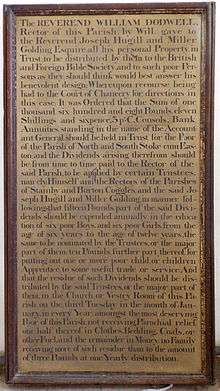 The REVEREND WILLIAM DODWELL
Rector of this Parish by Will gave to
the Reverend Joseph Hugill and Miller
Golding Esquire all his personal Property in
Trust to be distributed by them to the British
and Foreign Bible Society and to such poor Per-
sons as they should think would best answer his
benevolent design. Whereupon recourse being
had to the Court of Chancery for directions in
the case It was Ordered that the Sum of one
thousand six hundred and eight Pounds eleven
Shillings and sixpence 3 Pr Ct Consols, Bank
Annuities standing in the name of the Account-
ant General should be held in Trust for the Poor
of the Parish of North and South Stoke cum Eas-
ton and the Dividends arising therefrom should
be from time to time paid to the Rector of the
said Parish, to be applied by certain Trustees,
namely Himself and the Rectors of the Parishes
of Stainby and Burton Coggles and the said Jo-
seph Hugill and Miller Golding in manner fol-
lowing that fifteen Pounds part of the said Divi-
dends should be expended annually in the educa-
tion of six poor Boys, and six poor Girls from the
age of six years to the age of twelve years the
same to be nominated by the Trustees, or the major
part of them, ten Pounds further part thereof for
putting out one or more poor child, or children
Apprentice to some useful trade or service. And
that the residue of such Dividends should be dis-
tributed by the said Trustees, or the major part of
them, in the Church or Vestry Room of this Pa-
rish on the third Tuesday in the month of Jan-
uary, in every Year amongst the most deserving
Poor of this Parish, not receiving Parochial relief
one half thereof in Clothes, Bedding, Coals, or
other Fuel and the remainder in Money, no Family
receiving more of such residue than to the amount
of three Pounds at one Yearly distribution.